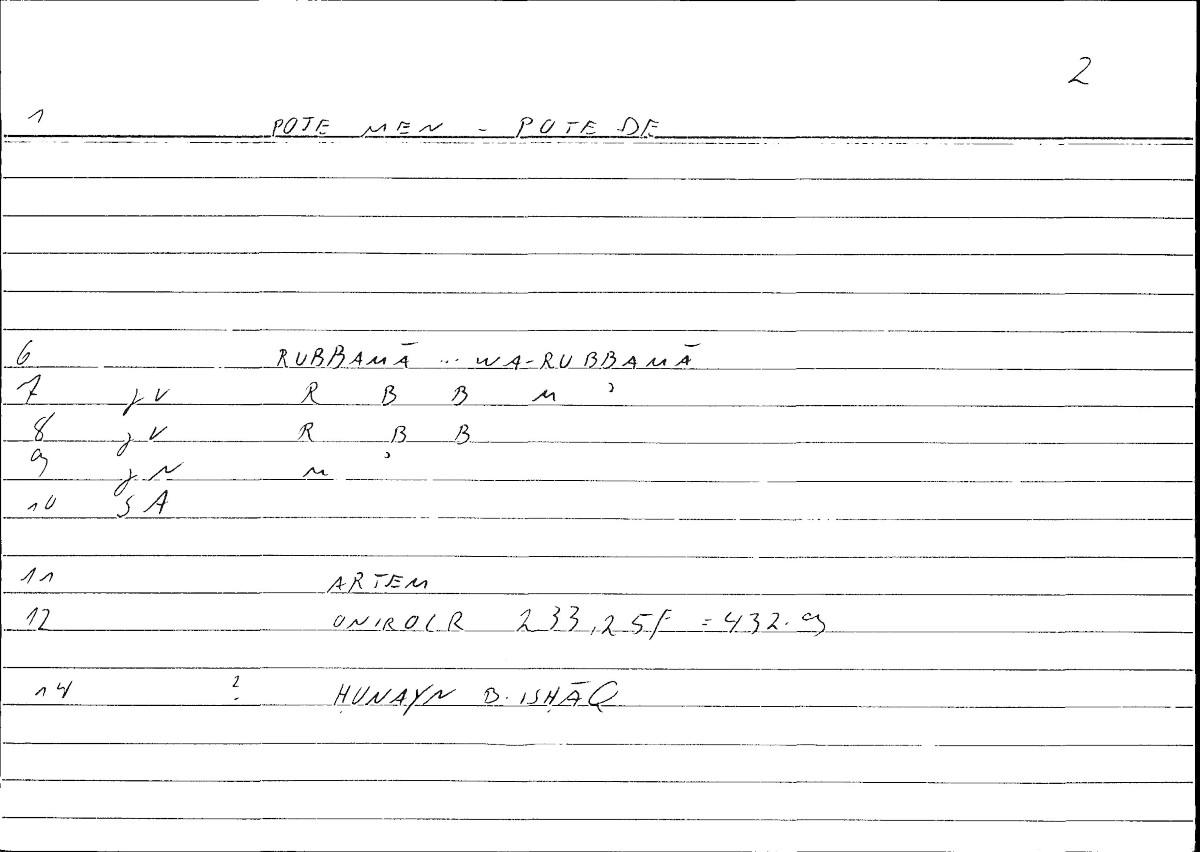 2
1 POTE MEN - POTE DE
6 RUBBAMĀ ... WA-RUBBAMĀ
7 γV R B B M ʾ
8 γV R B B
9 γN M ʾ
10 SA
11 ARTEM
12 ONIROCR 233,25f = 432.9
14 ? ḤUNAYN B. ISḤĀQ